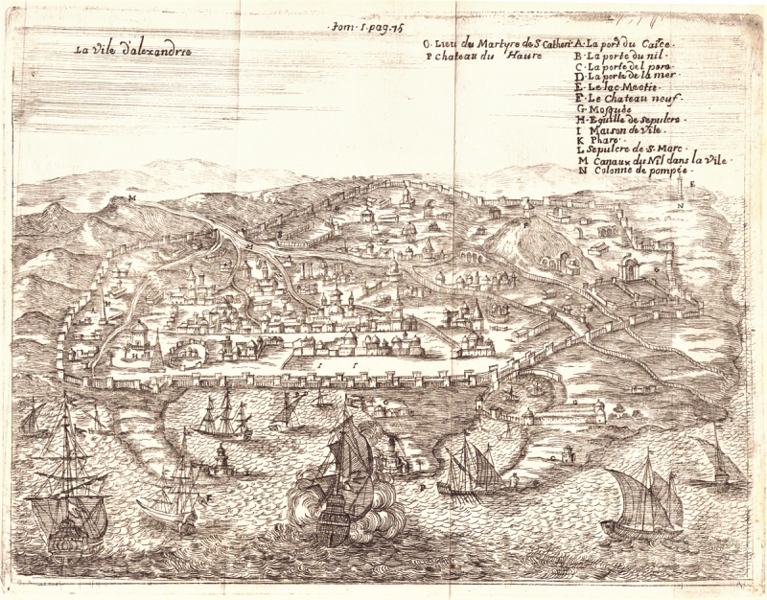 tom. I. pag. 75
La Vile d'alexandrie
O. Lieu du Martyre de S. Catheri
P Chateau du Haure
A. La port du Caire.
B. La porte du nil.
C. La porte del pora
D. La porte de la mer.
E. Le lac Meotis.
F. Le Chateau neuf.
G. Mosquée
H. Eguille de sepulcre.
I Maison de Vile.
K Phare.
L Sepulcre de S. Marc.
M Canaux du Nil dans la Vile.
N Colonne de pompée.
M
E
N
I I
F
P